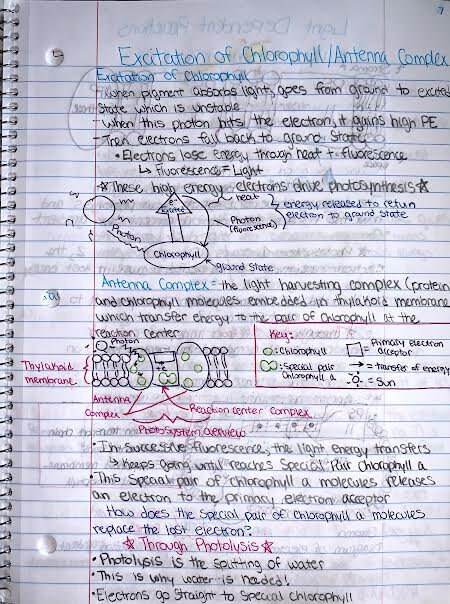 Excitation of Chlorophyll/Antenna Complex
Excitation of Chlorophyll
- When pigment absorbs light, goes from ground to excited
state which is unstable
- When this photon hits the electron, it gains high PE
- Then electrons fall back to ground state
• Electrons lose energy through heat + fluorescence
↳ Fluorescence = Light
☆ These high energy electrons drive photosynthesis ☆
e-
excited
heat
energy released to return
electron to ground state
Photon
(fluorescence)
Photon
Chlorophyll
ground state
Antenna Complex - the light harvesting complex (protein
and chlorophyll molecules embedded in thylakoid membrane
which transfer energy to the pair of chlorophyll at the
reaction center
Photon
Thylakoid
membrane
Key:
= Chlorophyll
= Special pair
Chlorophyll a
= Primary electron
acceptor
→ = transfer of energy
= Sun
Antenna
Complex
Reaction center complex
Photosystem overview
• In successive fluorescence, the light energy transfers
↳ keeps going until reaches Special Pair Chlorophyll a
• This special pair of chlorophyll a molecules releases
an electron to the primary electron acceptor
How does the special pair of chlorophyll a molecules
replace the lost electron?
☆ Through Photolysis ☆
• Photolysis is the splitting of water
• This is why water is needed!
• Electrons go straight to Special chlorophyll